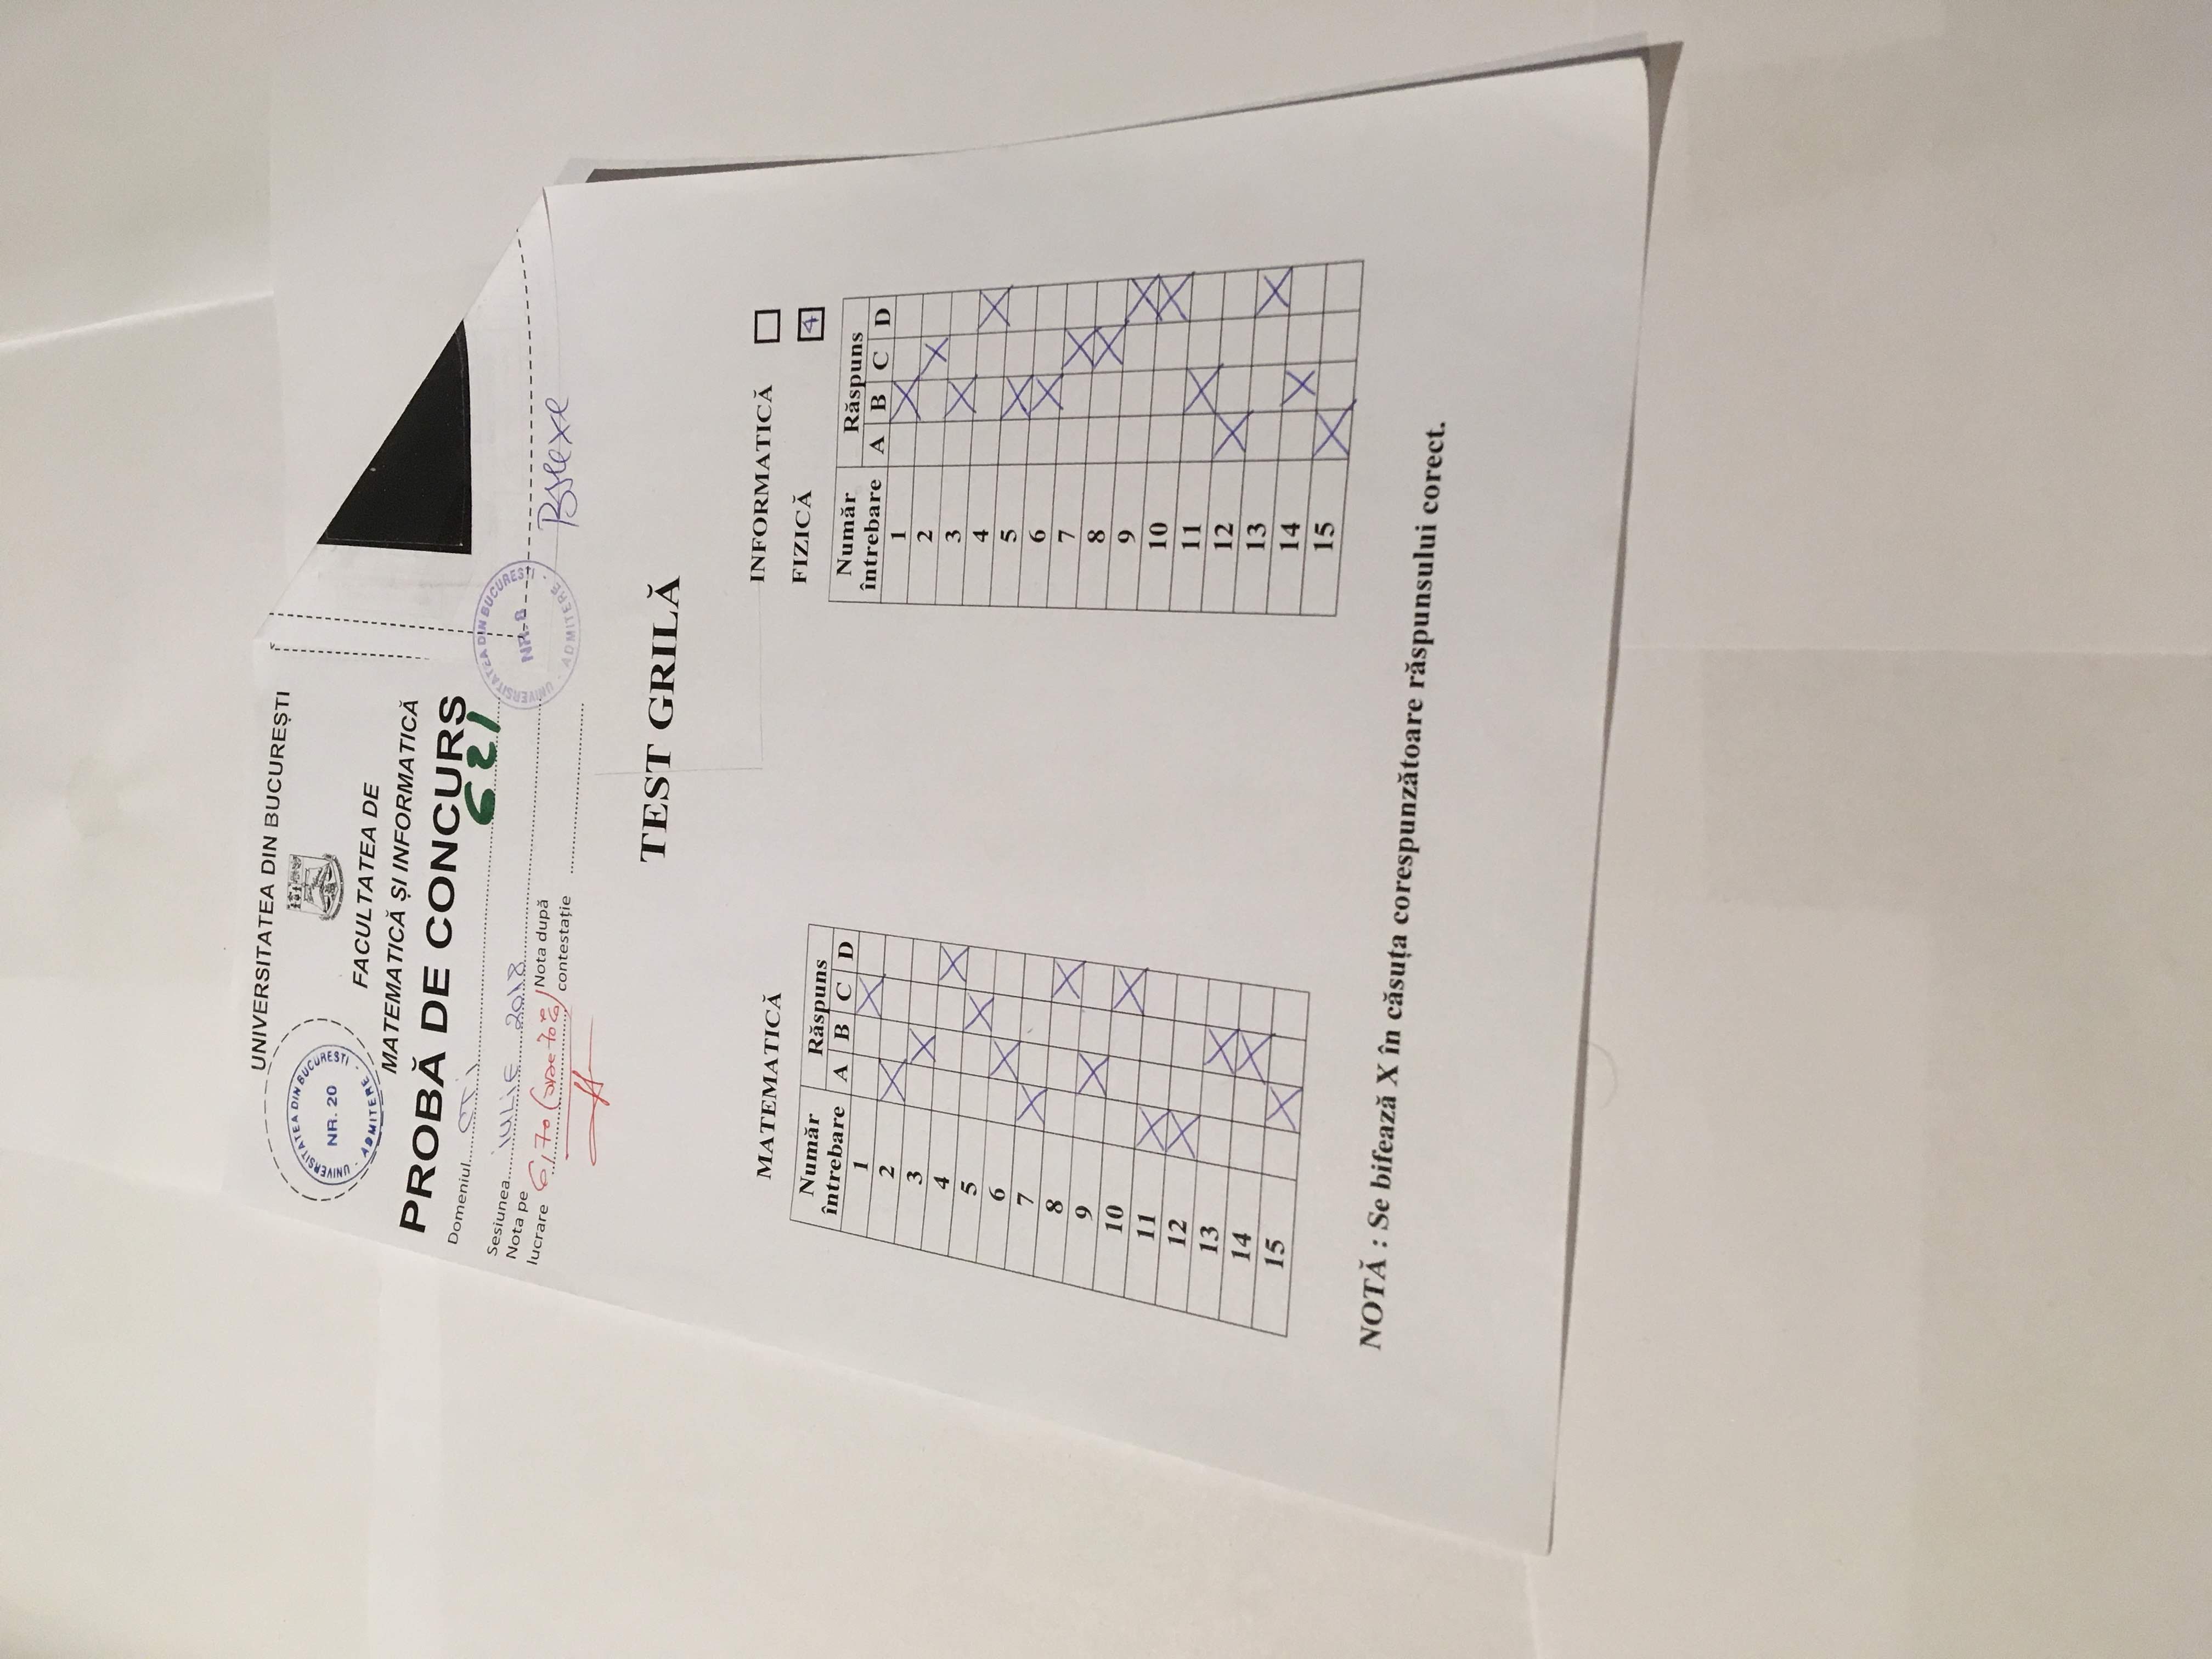 UNIVERSITATEA DIN BUCUREȘTI
UNIVERSITATEA DIN BUCUREȘTI
NR. 20
ADMITERE
FACULTATEA DE
MATEMATICĂ ȘI INFORMATICĂ
PROBĂ DE CONCURS
Domeniul CTi
621
Sesiunea iULiE 2018
Nota pe lucrare 6,70 (șase 70%)
Nota după contestație
UNIVERSITATEA DIN BUCUREȘTI
NR. 8
ADMITERE
TEST GRILĂ
MATEMATICĂ
Număr întrebare Răspuns
A B C D
1 X
2 X
3 X
4 X
5 X
6 X
7 X
8 X
9 X
10 X
11 X
12 X
13 X
14 X
15 X
INFORMATICĂ
FIZICĂ 4
Număr întrebare Răspuns
A B C D
1 X
2 X
3 X
4 X
5 X
6 X
7 X
8 X
9 X
10 X
11 X
12 X
13 X
14 X
15 X
NOTĂ : Se bifează X în căsuța corespunzătoare răspunsului corect.